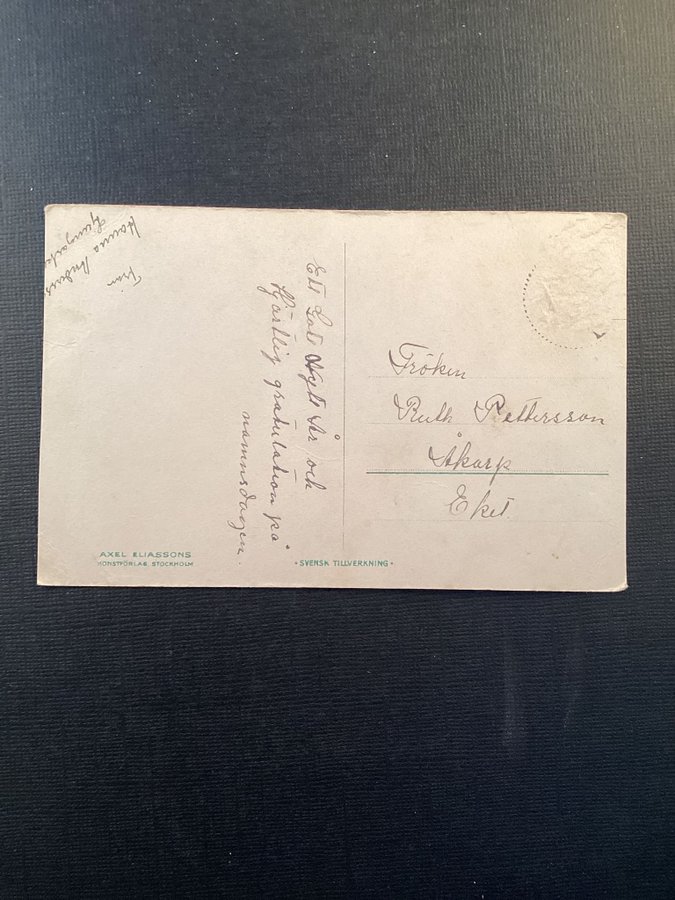 Ett Gott Nytt År och
Hjärtlig gratulation på
namnsdagen.
Från
Hanna
Fröken
Ruth Pettersson
Åkarp
Eket.
AXEL ELIASSONS
KONSTFÖRLAG, STOCKHOLM
• SVENSK TILLVERKNING •